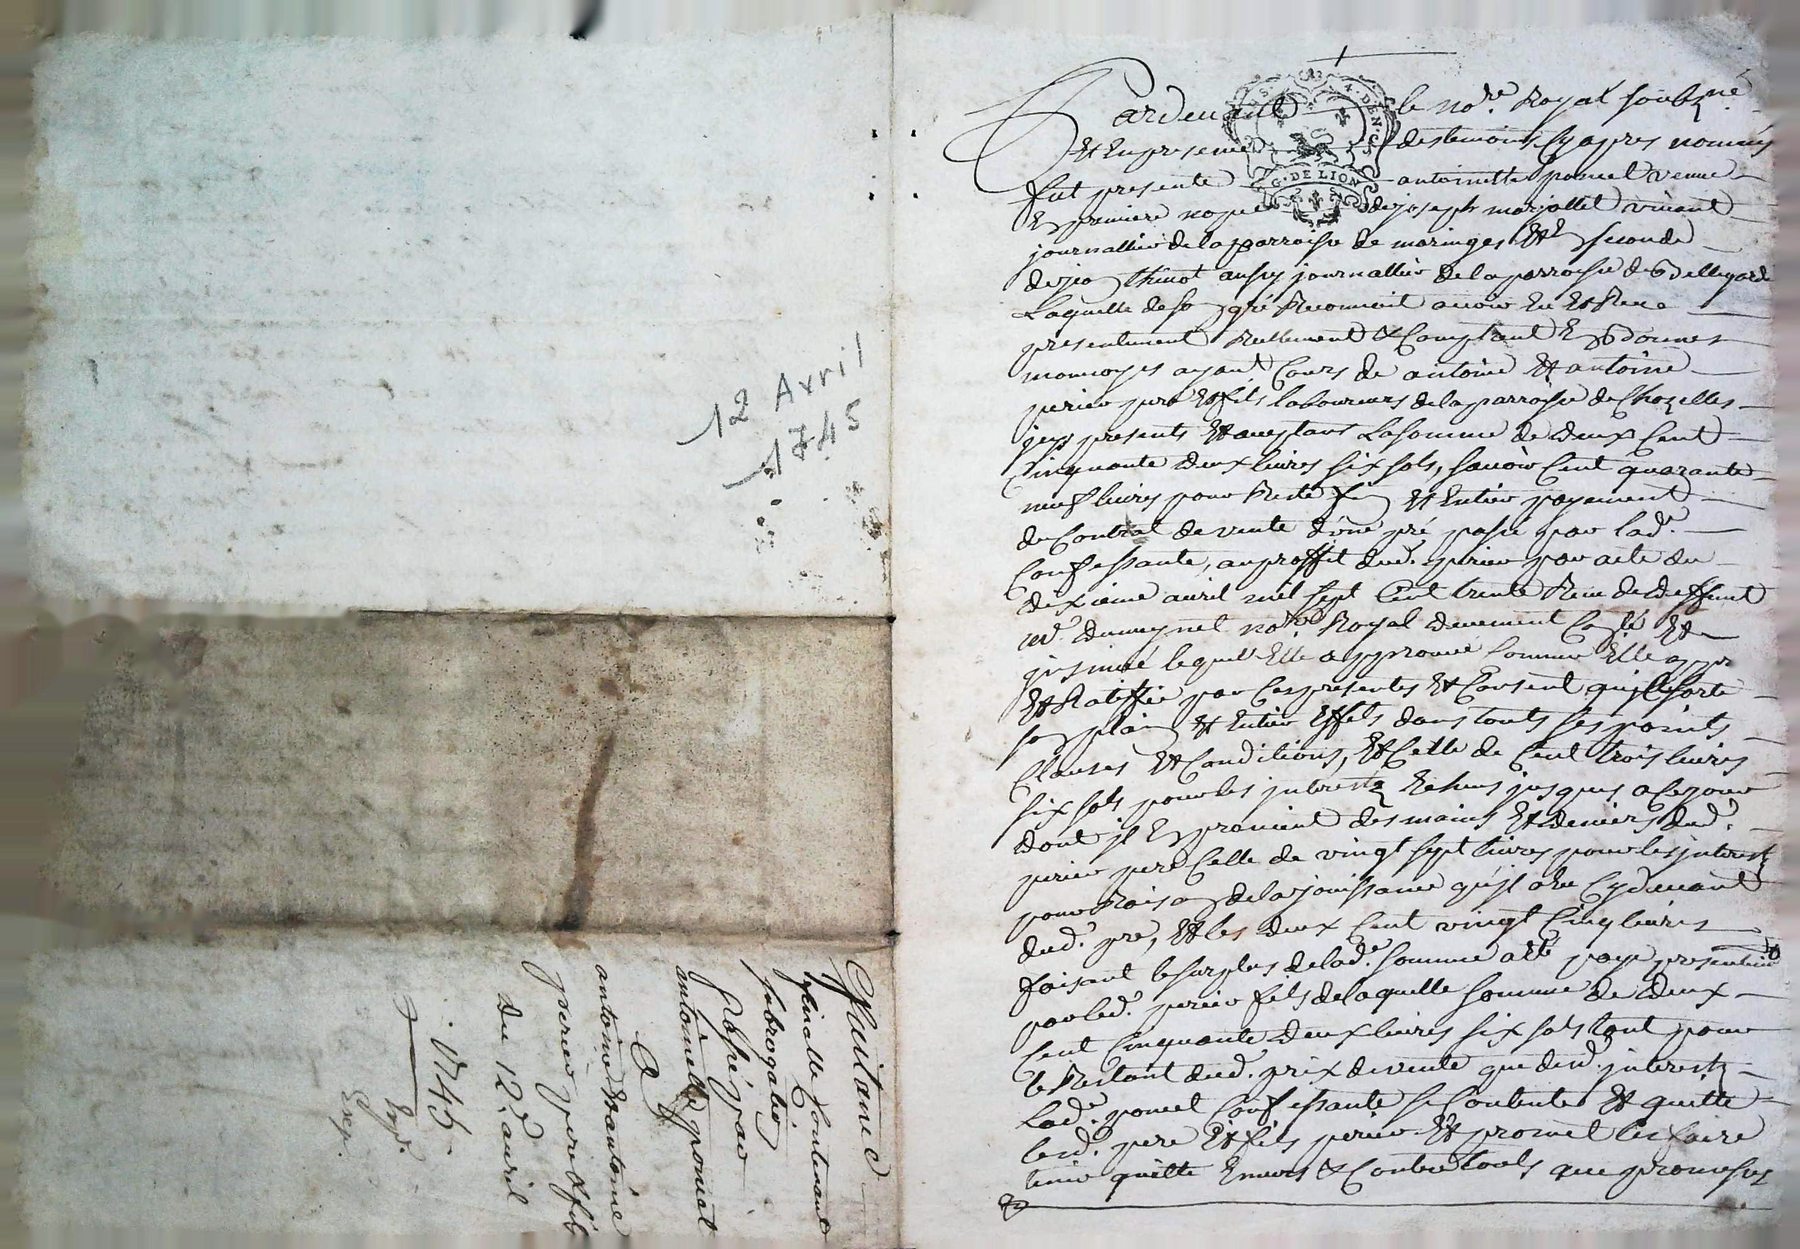 12 Avril
1745
Quittance
finalle Contenant
subrogation
passé par
antoinette poncet
A
antoine et antoine
perier pere & fils
Du 12e. avril
1745.
Exp.
Pardevant le nore. Royal soubzné
Et En presence des temoins Cy apres nommés
fut presente antoinette poncet veuve
En premiere nopce de joseph marjollet vivant
journallier de la parroisse de maringes Et En seconde
de jean thinot aussy journallier de la parroisse de Bellegarde
Laquelle de son gré Reconnoit avoir Eu Et Receu
presentement Reellement & Comptant En Bonnes
monnoyes ayant Cours de antoine Et antoine
perier pere Et fils laboureurs de la parroisse de Chazelles
icy presents Et acceptans La somme de deux Cent
Cinquante deux livres six sols, savoir Cent quarante
neuf livres pour Reste fin Et Entier payement
du Contrat de vente d'une pré passé par lade.
Confessante, au proffit dud. perier par acte du
deuxieme avril mil sept Cent trente Receu de deffunt
me. nore. Royal deuement Con^lé Et
insinué lequel Elle approuve Comme Elle appr
Et Ratiffie par Ces presentes Et Consent qu'il sorte
son plain Et Entier Effets dans touts ses points
Clauses Et Conditions, Et Celle de Cent trois livres
six sols pour les interests Echus jusques a Ce jour
dont il En provient des mains Et deniers dud.
perier pere Celle de vingt sept livres pour les interests
pour Raison de la jouissance qu'il a Eu Cy devant
dud. pré, Et les deux Cent vingt Cinq livres
faisant le surplus de lade. somme a Eté payé presentement
par led. perier fils de laquelle somme de deux
Cent Cinquante deux livres six sols tant pour
le Restant dud. prix de vente que desd. interests
Lade. poncet Confessante se Contente Et quitte
lesd. pere Et fils perier Et promet les faire
tenir quitte Envers & Contre touts que promesses
G. DE LION